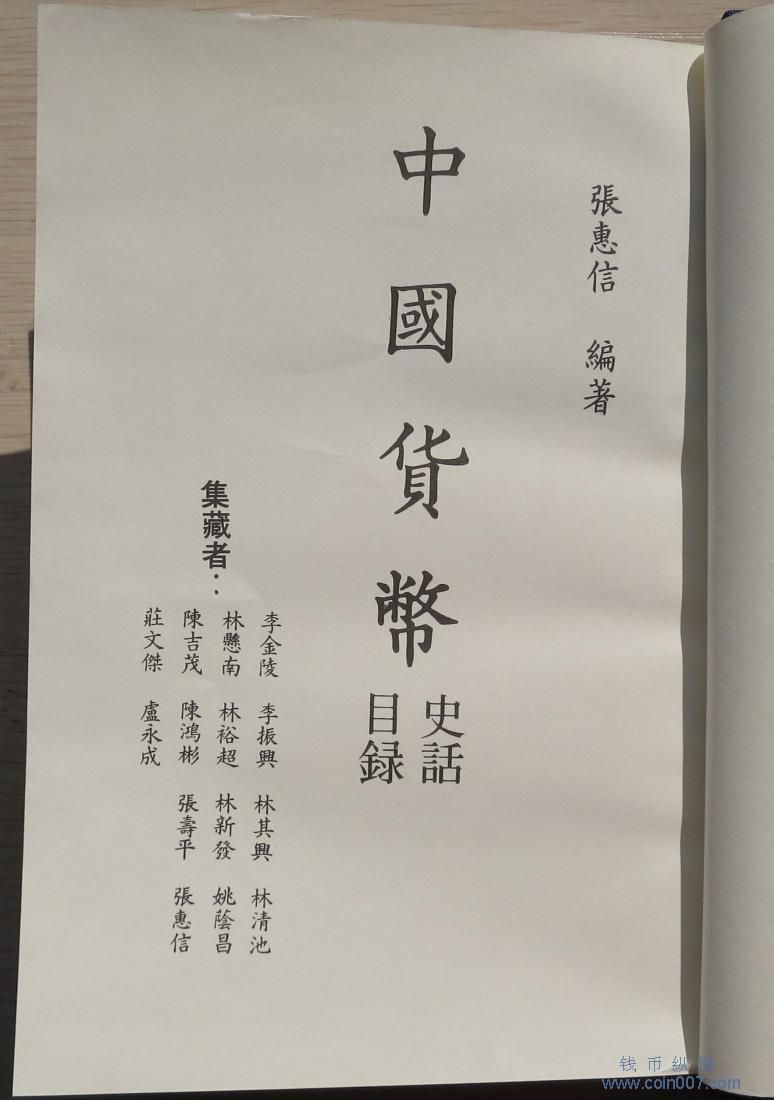 張惠信　編著
中國貨幣
史話
目録
集藏者：
李金陵　李振興　林其興　林清池
林懸南　林裕超　林新發　姚蔭昌
陳吉茂　陳鴻彬　張壽平　張惠信
莊文傑　盧永成
钱币纵
www.coin007.com